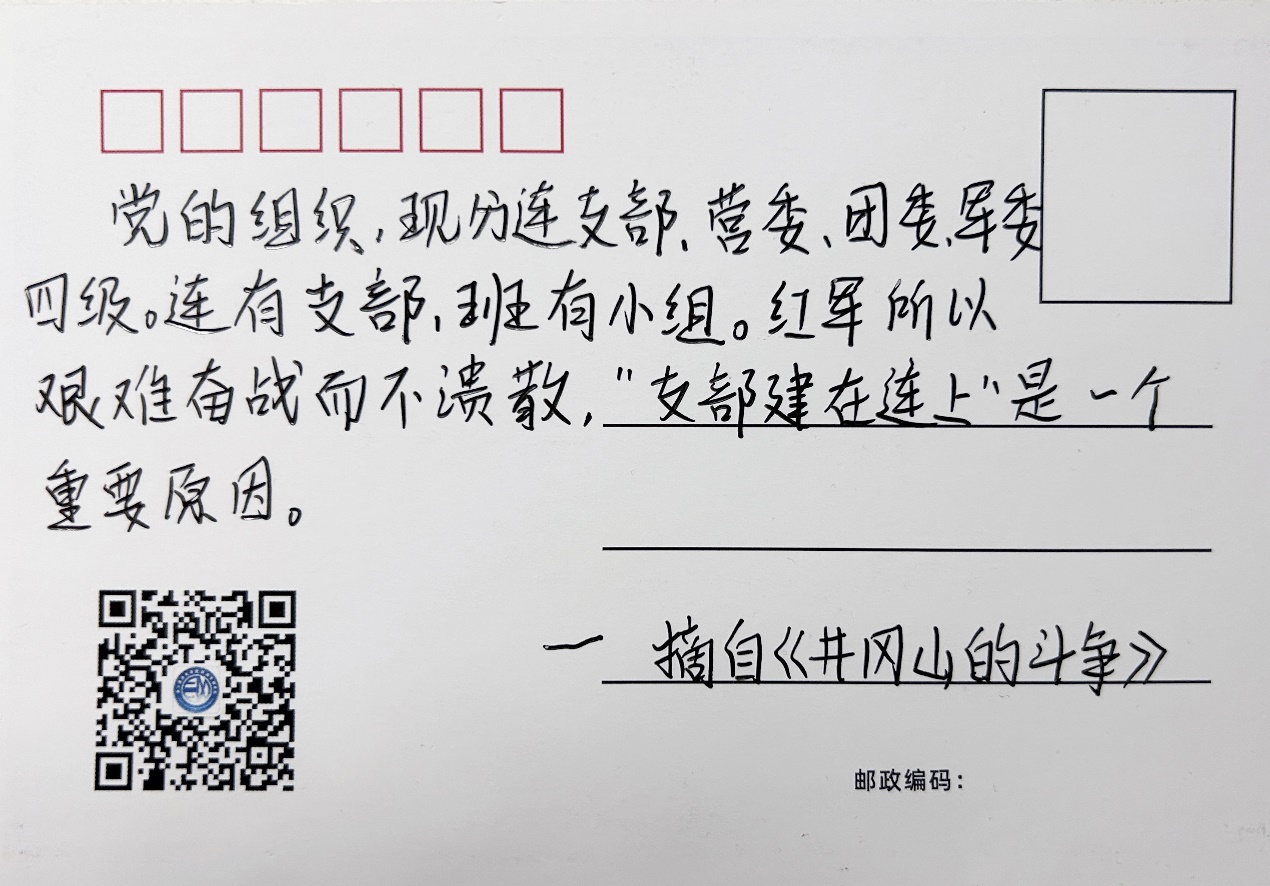 党的组织,现分连支部、营委、团委、军委
四级。连有支部,班有小组。红军所以
艰难奋战而不溃散,"支部建在连上"是一个
重要原因。
一 摘自《井冈山的斗争》
邮政编码: